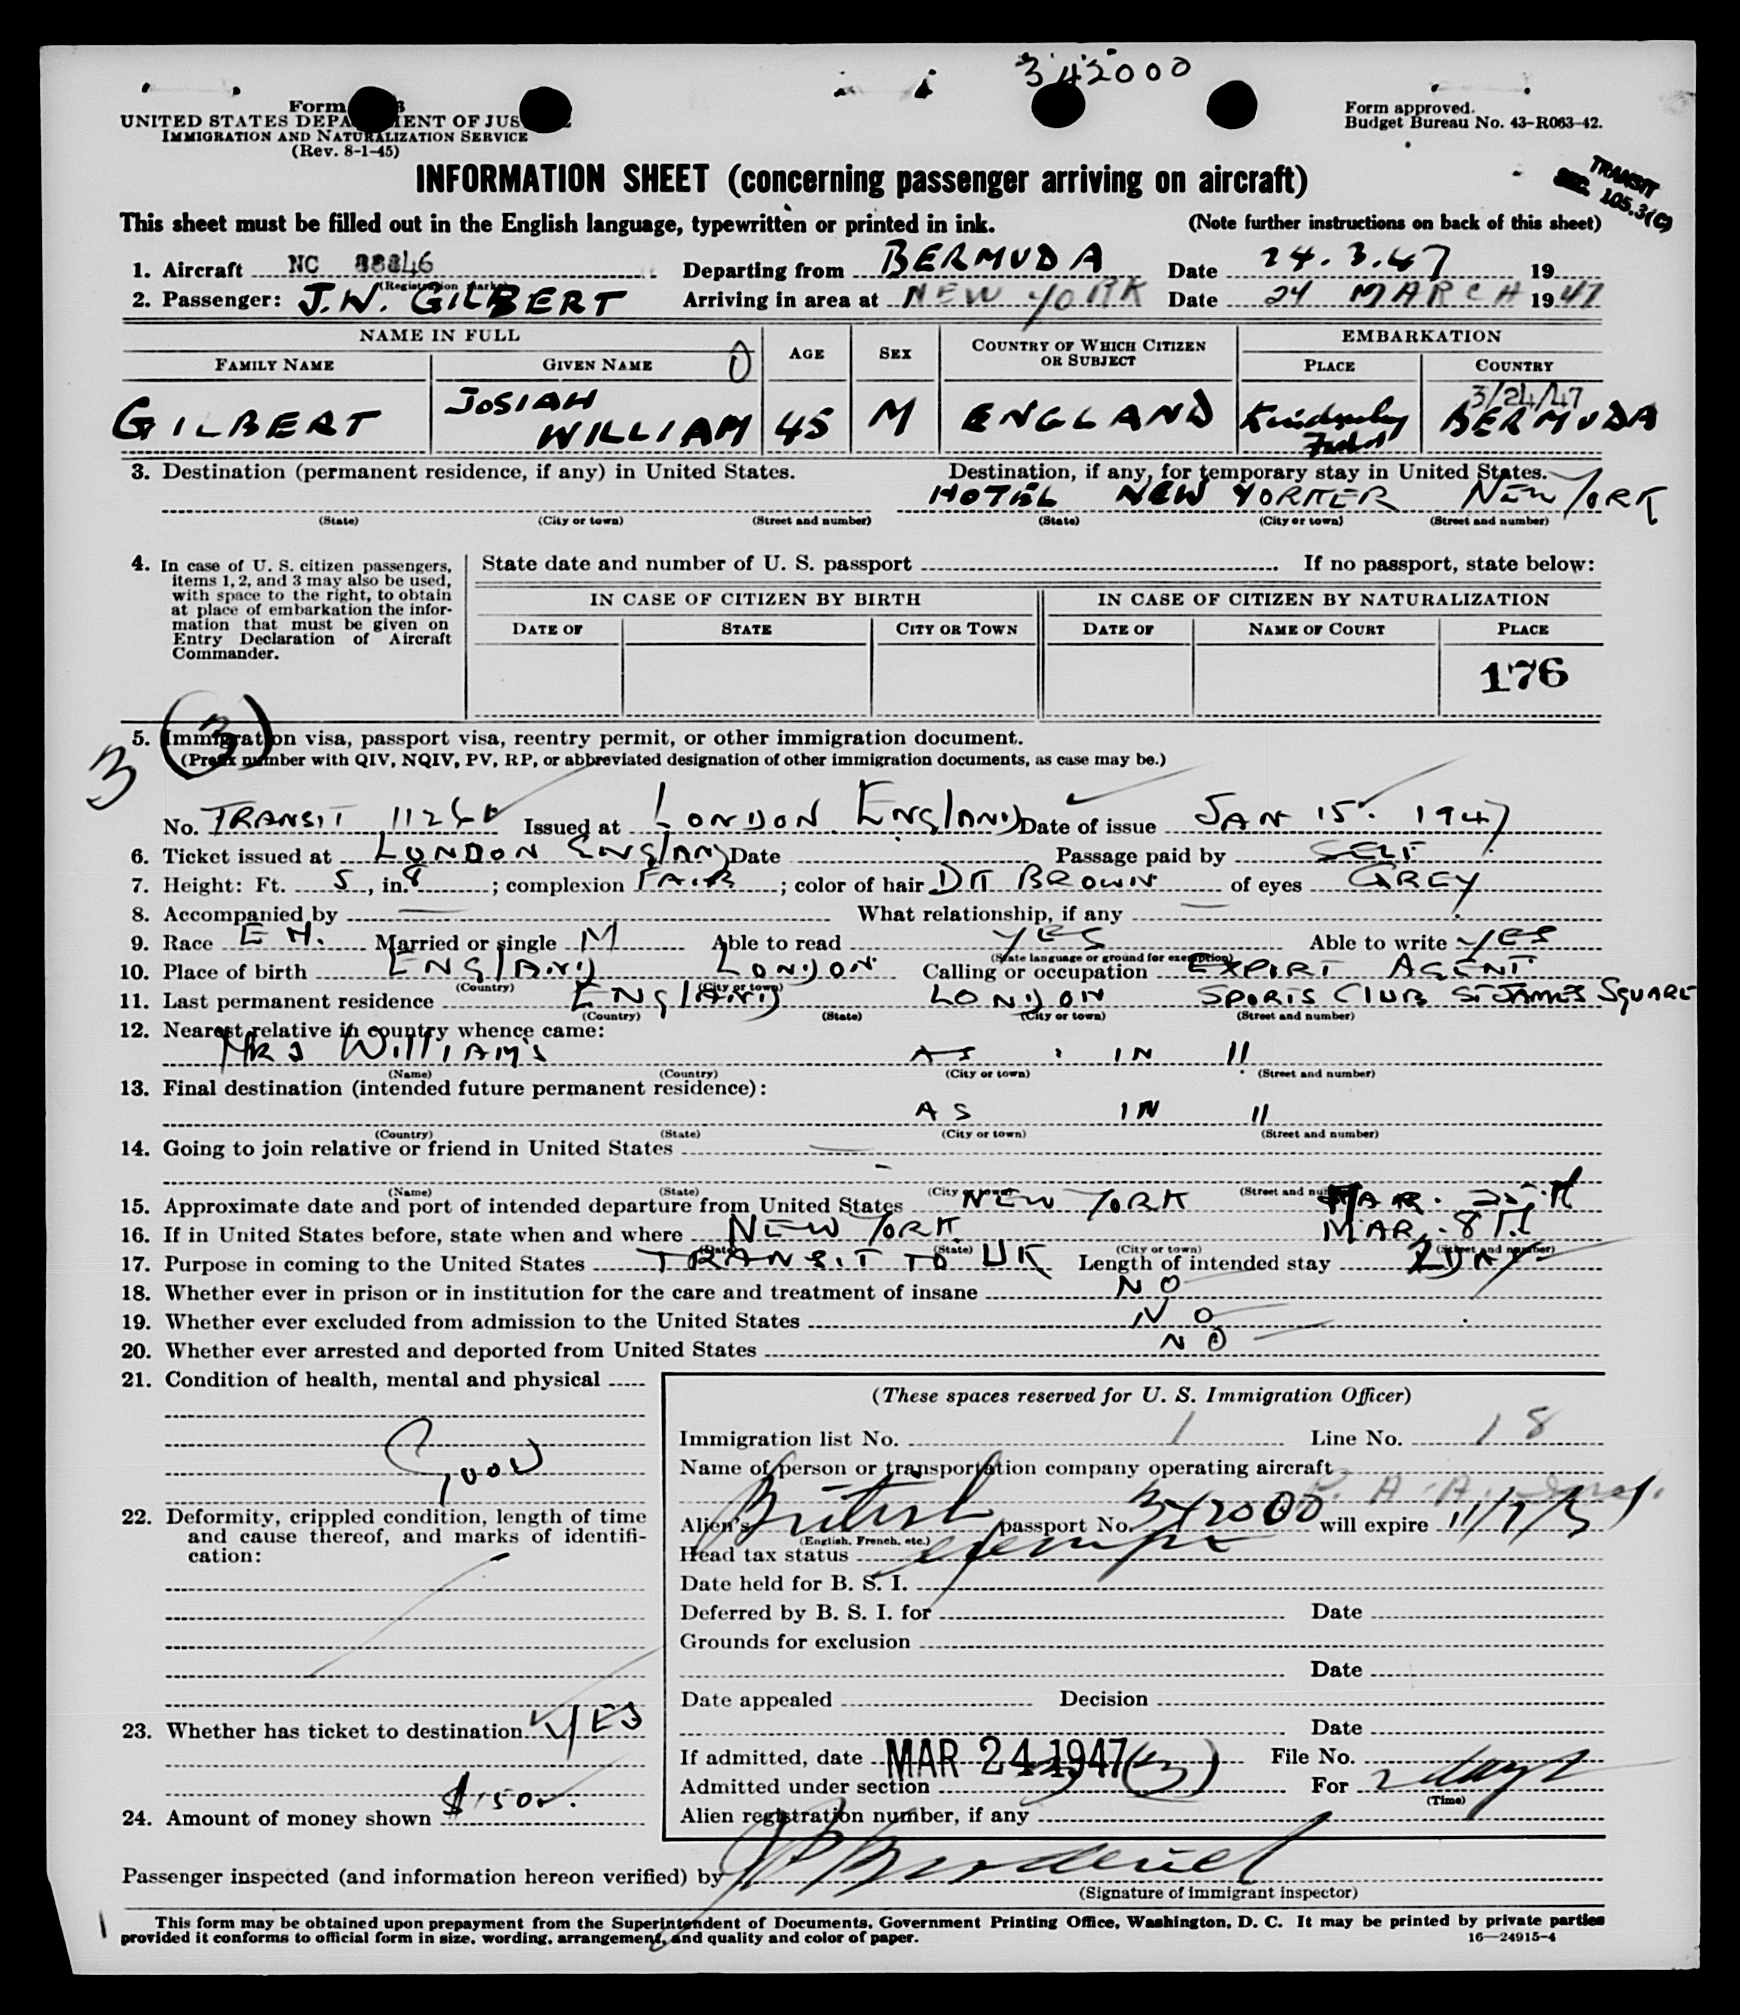 342000
Form
UNITED STATES DEPARTMENT OF JUSTICE
IMMIGRATION AND NATURALIZATION SERVICE
(Rev. 8-1-45)
Form approved.
Budget Bureau No. 43-R063-42.
TRANSIT
SEC. 105.3(C)
INFORMATION SHEET (concerning passenger arriving on aircraft)
This sheet must be filled out in the English language, typewritten or printed in ink. (Note further instructions on back of this sheet)
1. Aircraft NC Departing from BERMUDA Date 24.3.47 19
(Registration marks)
2. Passenger: J.W. GILBERT Arriving in area at NEW YORK Date 24 MARCH 1947
NAME IN FULL AGE SEX COUNTRY OF WHICH CITIZEN OR SUBJECT EMBARKATION
FAMILY NAME GIVEN NAME PLACE COUNTRY
3/24/47
GILBERT JOSIAH WILLIAM 45 M ENGLAND Kindley Field BERMUDA
3. Destination (permanent residence, if any) in United States. Destination, if any, for temporary stay in United States.
HOTEL NEW YORKER NEW YORK
(State) (City or town) (Street and number) (State) (City or town) (Street and number)
4. In case of U. S. citizen passengers, items 1, 2, and 3 may also be used, with space to the right, to obtain at place of embarkation the information that must be given on Entry Declaration of Aircraft Commander.
State date and number of U. S. passport If no passport, state below:
IN CASE OF CITIZEN BY BIRTH IN CASE OF CITIZEN BY NATURALIZATION
DATE OF STATE CITY OR TOWN DATE OF NAME OF COURT PLACE
176
3 (3)
5. Immigration visa, passport visa, reentry permit, or other immigration document.
(Prefix number with QIV, NQIV, PV, RP, or abbreviated designation of other immigration documents, as case may be.)
No. TRANSIT Issued at LONDON ENGLAND Date of issue JAN 15. 1947
6. Ticket issued at LONDON ENGLAND Date Passage paid by SELF
7. Height: Ft. 5, in. 8; complexion FAIR; color of hair DK BROWN of eyes GREY
8. Accompanied by — What relationship, if any —
9. Race Married or single M Able to read YES Able to write YES
(State language or ground for exemption)
10. Place of birth ENGLAND LONDON Calling or occupation EXPORT AGENT
(Country) (City or town)
11. Last permanent residence ENGLAND LONDON SPORTS CLUB ST JAMES SQUARE
(Country) (State) (City or town) (Street and number)
12. Nearest relative in country whence came:
MRS WILLIAM'S AS IN 11
(Name) (Country) (City or town) (Street and number)
13. Final destination (intended future permanent residence):
AS IN 11
(Country) (State) (City or town) (Street and number)
14. Going to join relative or friend in United States —
(Name) (State) (City or town) (Street and number)
15. Approximate date and port of intended departure from United States NEW YORK MAR.
16. If in United States before, state when and where NEW YORK. MAR. 8TH
(Date) (State) (City or town) (Street and number)
17. Purpose in coming to the United States TRANSIT TO UK Length of intended stay 2 DAY
18. Whether ever in prison or in institution for the care and treatment of insane NO
19. Whether ever excluded from admission to the United States NO
20. Whether ever arrested and deported from United States NO
21. Condition of health, mental and physical
GOOD
22. Deformity, crippled condition, length of time and cause thereof, and marks of identification:
23. Whether has ticket to destination YES
24. Amount of money shown
(These spaces reserved for U. S. Immigration Officer)
Immigration list No. 1 Line No. 18
Name of person or transportation company operating aircraft
P. A. A.
Alien's British passport No. 342000 will expire
(English, French, etc.)
Head tax status exempt
Date held for B. S. I.
Deferred by B. S. I. for Date
Grounds for exclusion
Date
Date appealed Decision
Date
If admitted, date MAR 24 1947 File No.
Admitted under section 3(3) For 2 days
(Time)
Alien registration number, if any
Passenger inspected (and information hereon verified) by
(Signature of immigrant inspector)
This form may be obtained upon prepayment from the Superintendent of Documents, Government Printing Office, Washington, D. C. It may be printed by private parties
provided it conforms to official form in size, wording, arrangement, and quality and color of paper. 16—24915-4